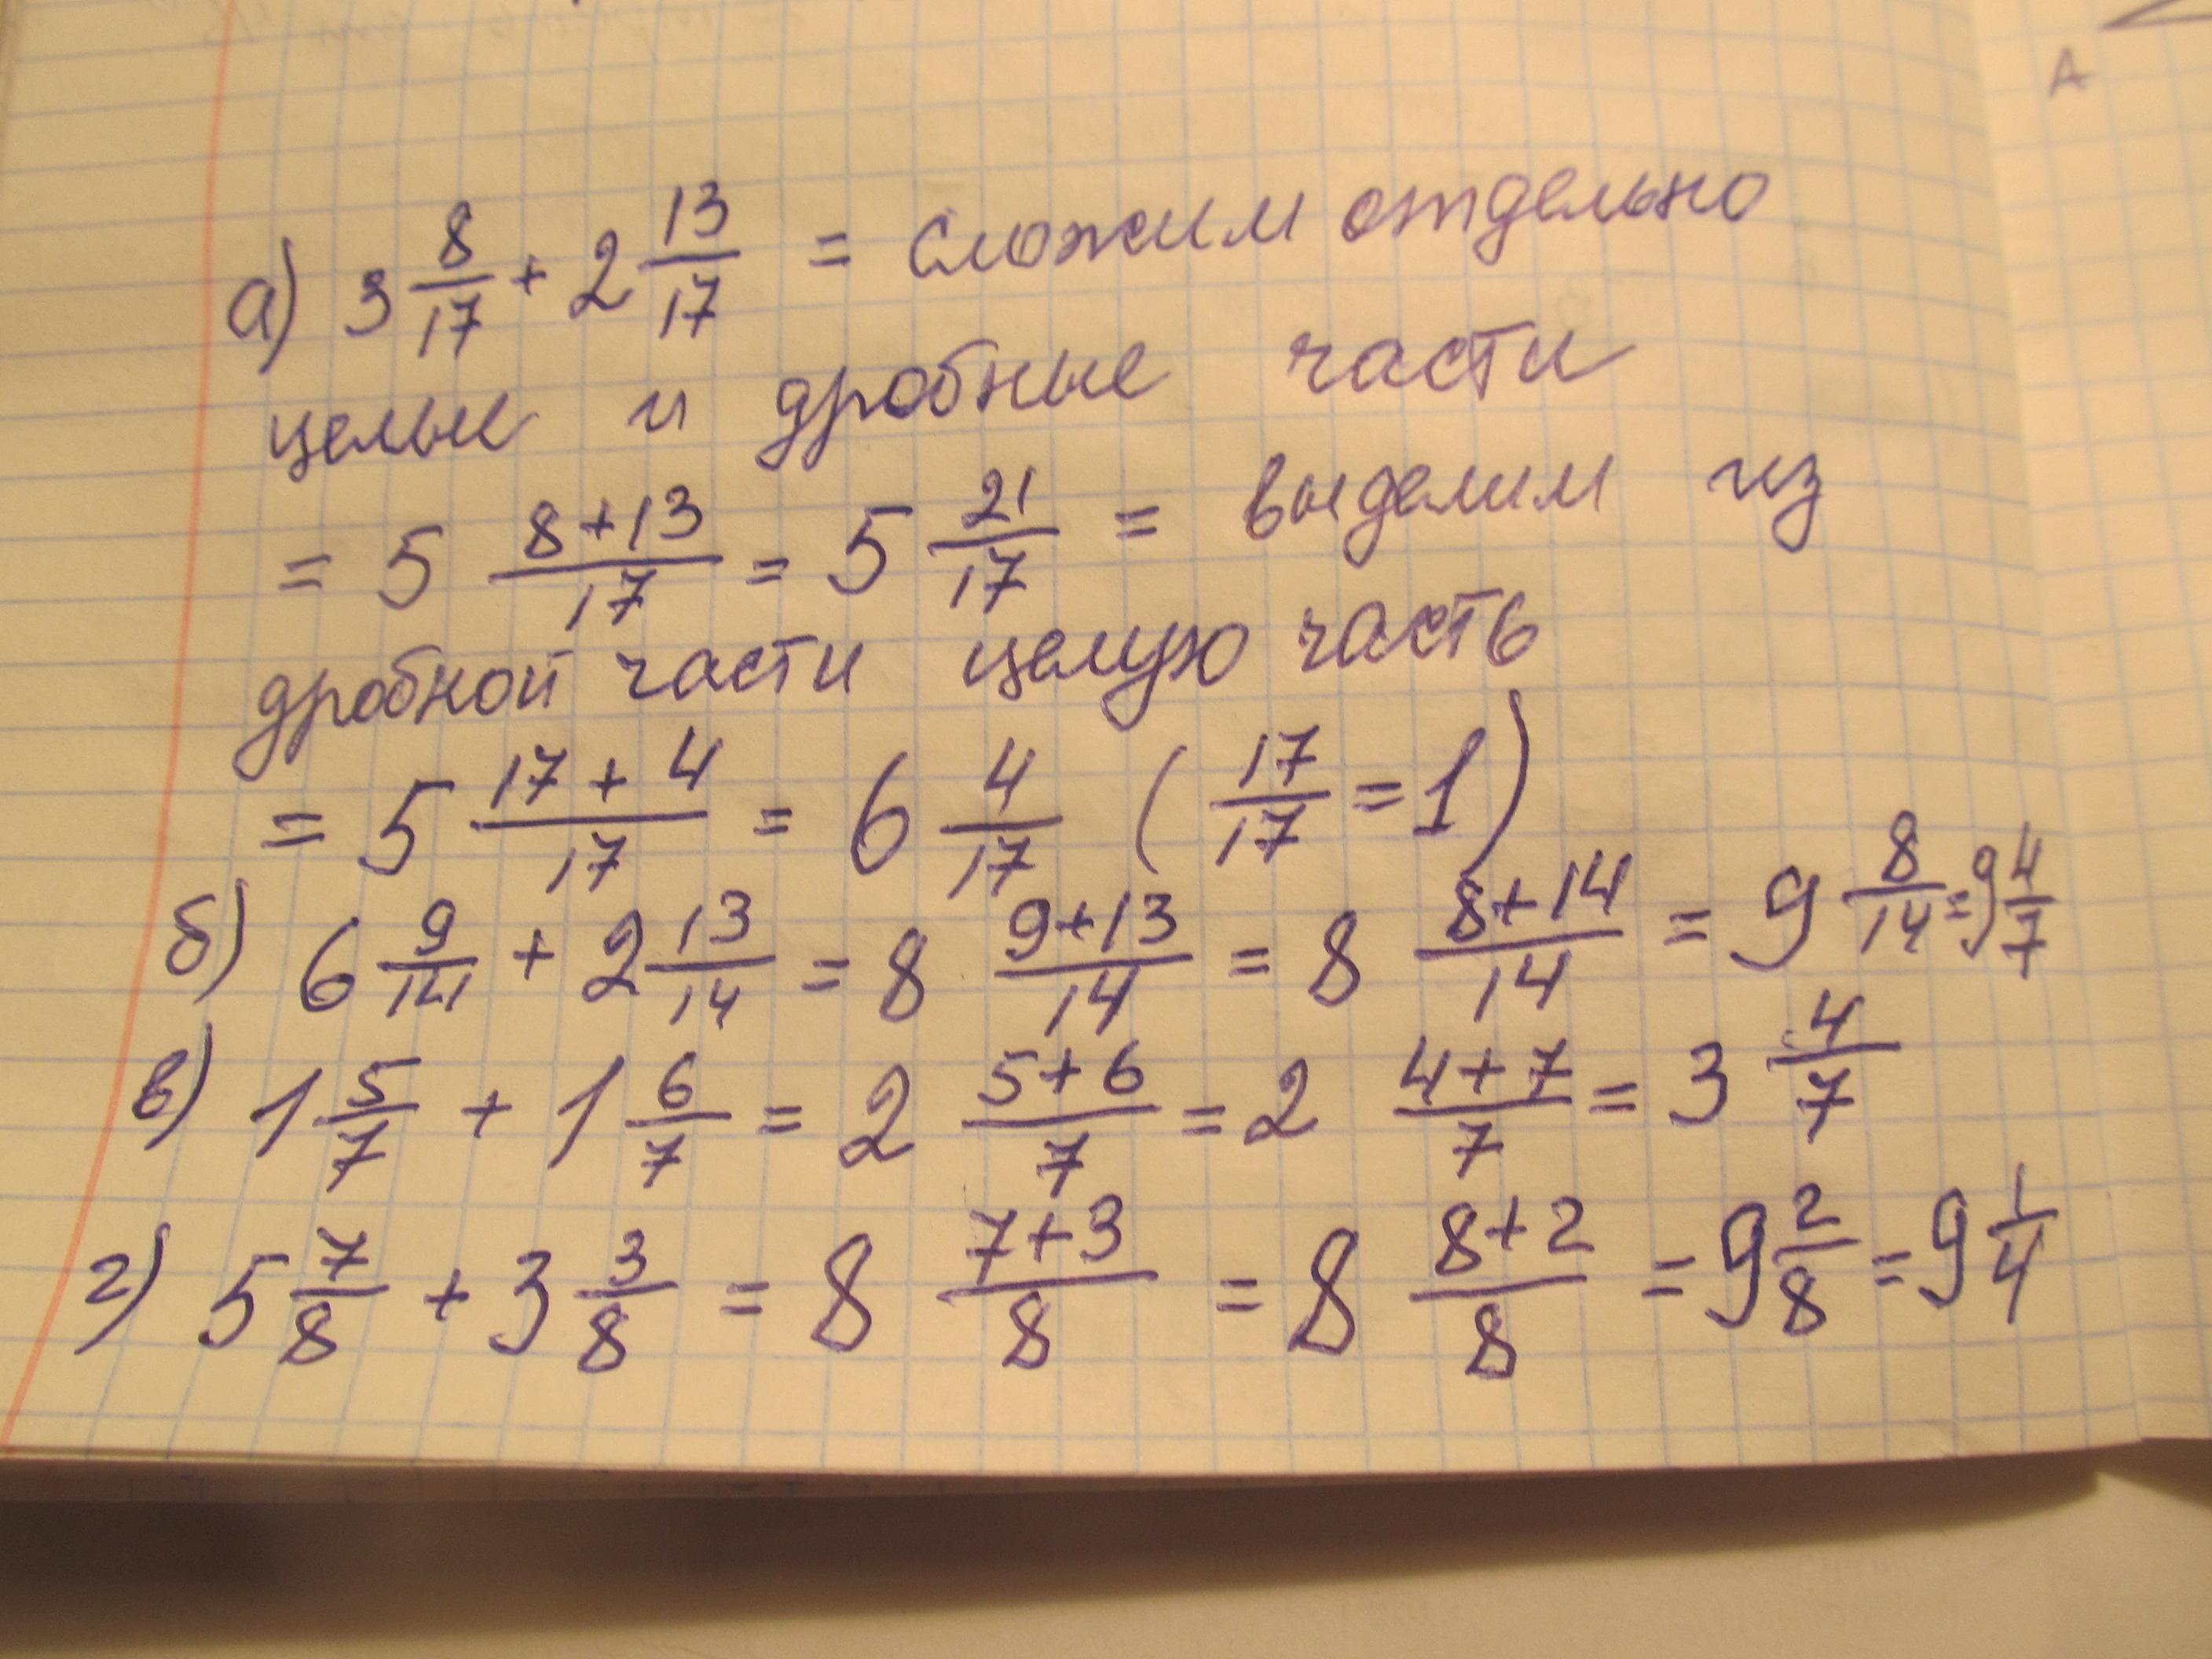 а) 3 8/17 + 2 13/17 = сложим отдельно
целые и дробные части
= 5 (8+13)/17 = 5 21/17 = выделим из
дробной части целую часть
= 5 (17+4)/17 = 6 4/17 (17/17 = 1)
б) 6 9/14 + 2 13/14 = 8 (9+13)/14 = 8 (8+14)/14 = 9 8/14 = 9 4/7
в) 1 5/7 + 1 6/7 = 2 (5+6)/7 = 2 (4+7)/7 = 3 4/7
г) 5 7/8 + 3 3/8 = 8 (7+3)/8 = 8 (8+2)/8 = 9 2/8 = 9 1/4
A